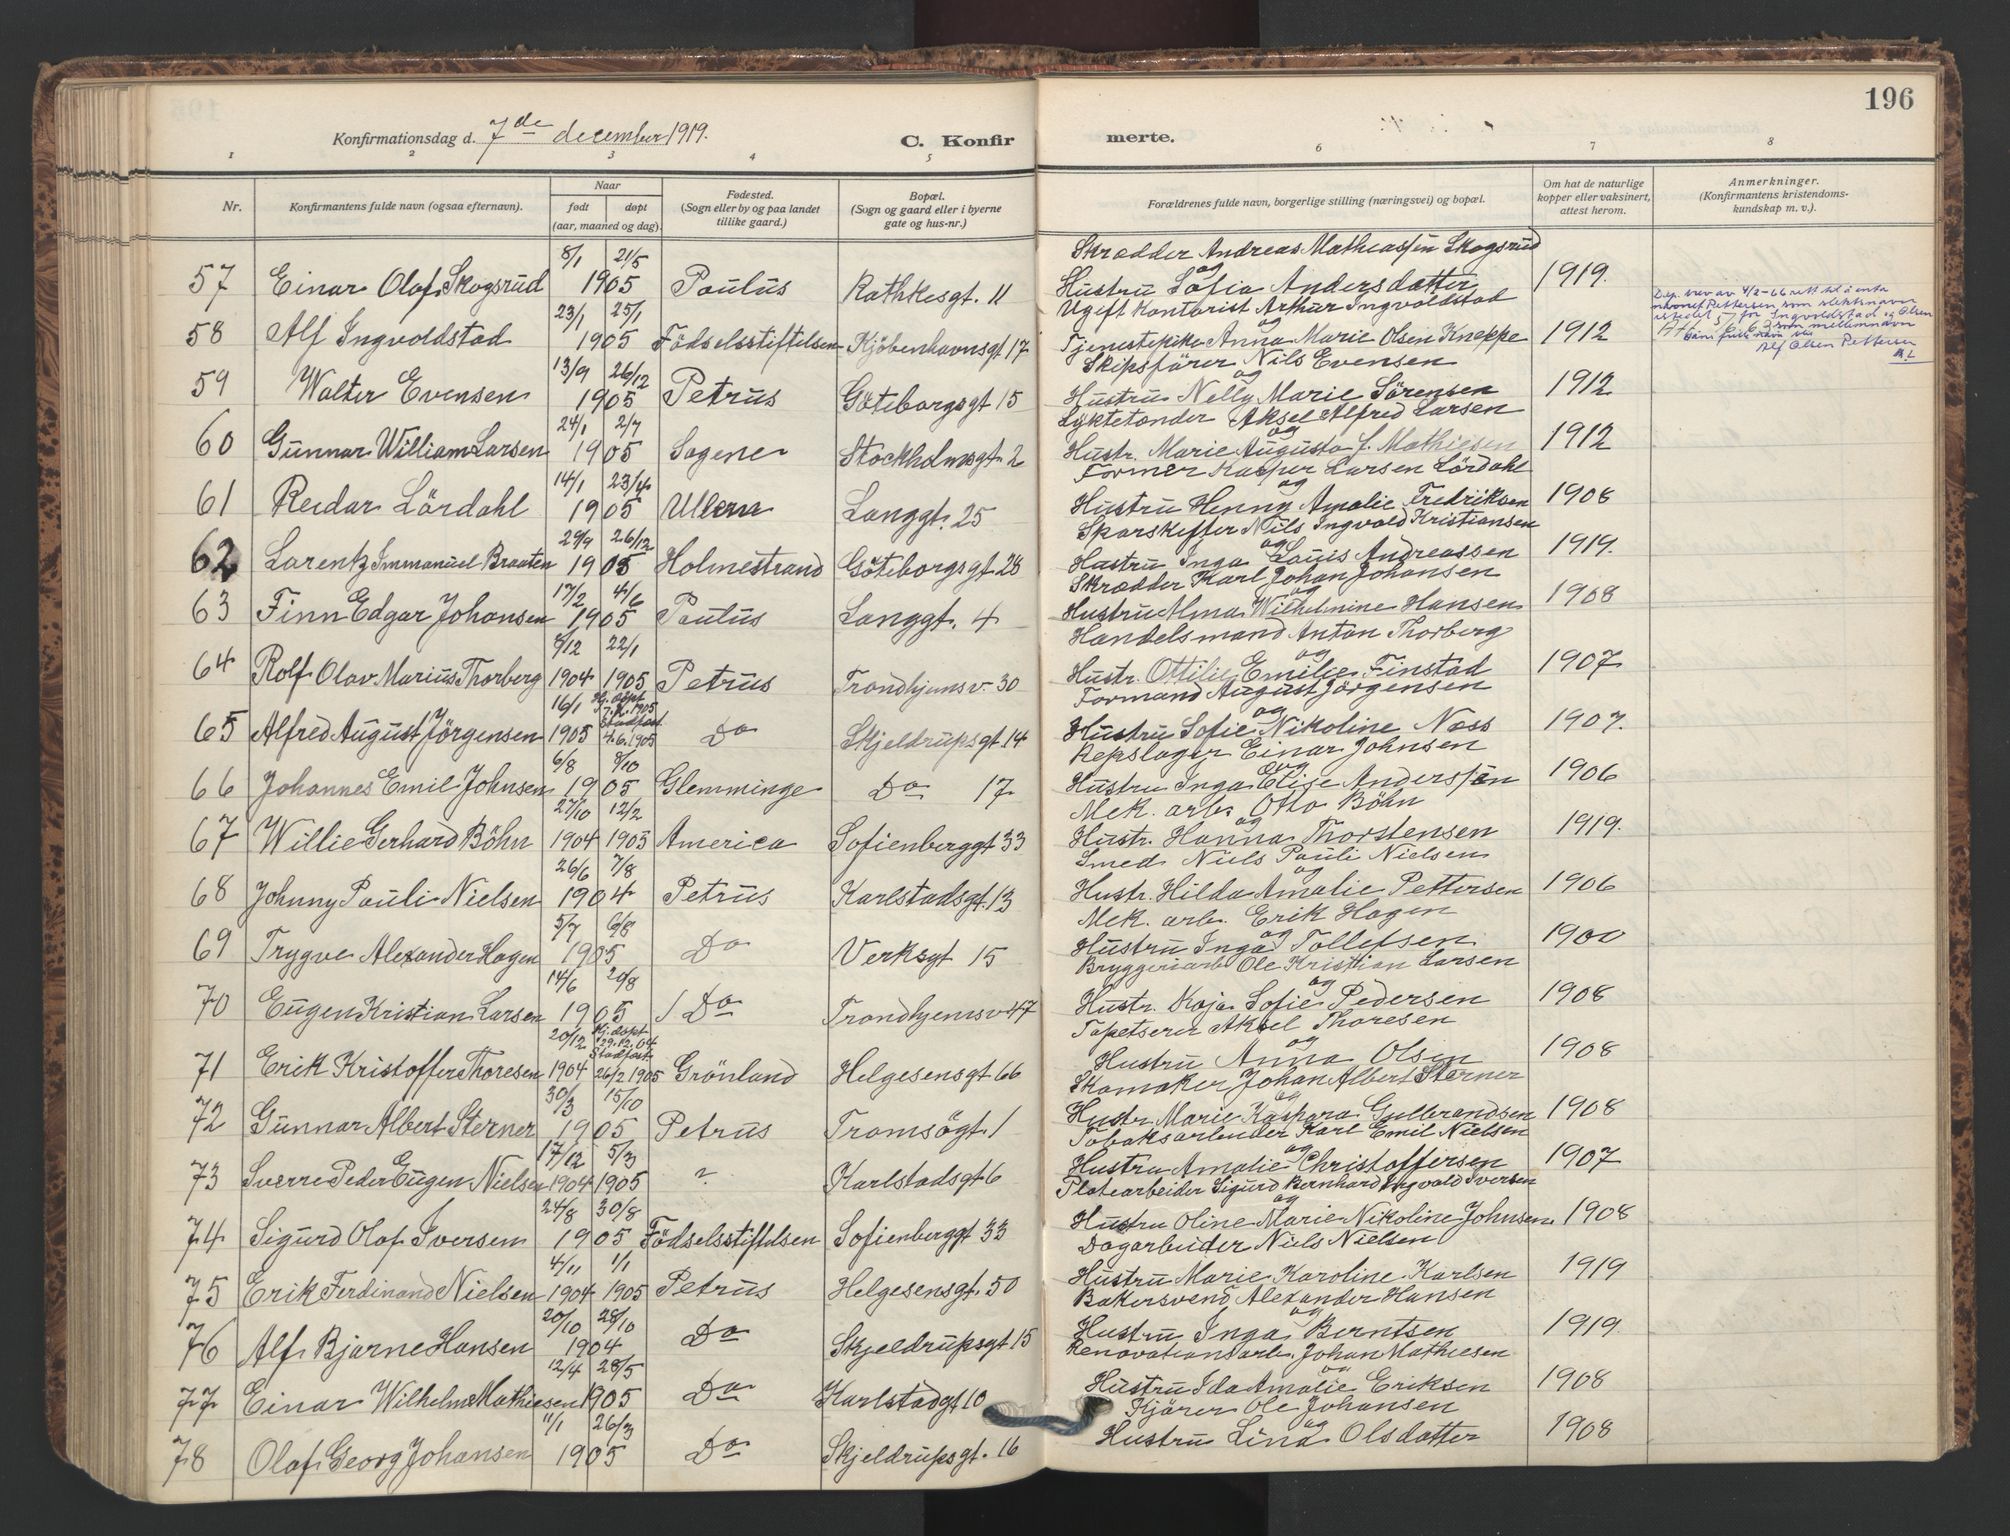 196
Konfirmationsdag d. 7de december 1919.
C. Konfirmerte.
1 2 3 4 5 6 7 8
Nr.
Konfirmantens fulde navn (ogsaa efternavn).
Naar
født døpt
(aar, maaned og dag).
Fødested.
(Sogn eller by og paa landet
tillike gaard.)
Bopæl.
(Sogn og gaard eller i byerne
gate og hus-nr.)
Forældrenes fulde navn, borgerlige stilling (næringsvei) og bopæl.
Om hat de naturlige
kopper eller vaksinert,
attest herom.
Anmerkninger.
(Konfirmantens kristendoms-
kundskap m. v.).
8/1 21/5 Skrædder Andreas Mathiassen Skogsrud
57 Einar Olaf Skogsrud 1905 Paulus Rathkesgt. 11 og Hustru Sofia Andersdatter 1919.
23/1 25/1 Ugift Kontorist Arthur Ingvoldstad
58 Alf Ingvoldstad 1905 Födselsstiftelsen Kjöbenhavnsgt 17 og Tjenestepike Anna Marie Olsen Kneppe 1912
Dep. brev av 4/2-66 rett til å anta
navnet Pettersen som slektsnavn
istedet for Ingvoldstad og Olsen
som mellemnavn
Alf Olsen Pettersen
13/9 26/12 Skipsförer Nils Evensen
59 Walter Evensen 1905 Petrus Göteborgsgt 15 og Hustru Nelly Marie Sörensen 1912
24/1 2/7 Lyktetænder Aksel Alfred Larsen
60 Gunnar William Larsen 1905 Sagene Stockholmsgt. 2 og Hustr. Marie Augusta f. Mathiesen 1912
14/1 23/4 Former Kasper Larsen Lördahl
61 Reidar Lördahl 1905 Ullern Langgt. 25 og Hustru Henny Amalie Fredriksen 1908
29/9 26/12 Sparskiffer Nils Ingvald Kristiansen
62 Larentz Immanuel Braaten 1905 Holmestrand Göteborgsgt 28 og Hustru Inga Lauis Andreassen 1919.
17/2 4/6 Skrædder Karl Johan Johansen
63 Finn Edgar Johansen 1905 Paulus Langgt. 4 og Hustru Alma Wilhelmine Hansen 1908
8/12 22/1 Handelsmand Anton Thorberg
64 Rolf Olav Marius Thorberg 1904 1905 Petrus Trondhjemsv. 30 og Hustr. Ottilie Emilie Finstad 1907
16/1 Hj. döpt 7.2.1905 Formand August Jörgensen
65 Alfred August Jörgensen 1905 Stadfæst 4.6.1905 Do Skjeldrupsgt. 14 og Hustru Sofie Nikoline Næss 1907.
6/8 8/10 Repslager Einar Johnsen
66 Johannes Emil Johnsen 1905 Glemminge Do 17 og Hustru Inga Elise Anderssen 1906
27/10 12/2 Mek. arb. Otto Böhn
67 Willie Gerhard Böhn 1904 1905 America Sofienberggt 33 og Hustr. Hanna Thorstensen 1919.
26/6 7/8 Smed Niels Pauli Nielsen
68 Johnny Pauli Nielsen 1904 Petrus Karlstadsgt. 13 og Hustr. Hilda Amalie Pettersen 1906
5/7 6/8 Mek. arb. Erik Hagen
69 Trygve Alexander Hagen 1905 Do Verksgt 15 og Hustru Inga Tollefsen 1900
14/6 20/8 Bryggeriarb Ole Kristian Larsen
70 Eugen Kristian Larsen 1905 Do Trondhjemsv 47 og Hustr. Kaja Sofie Pedersen 1908
20/12 Hj. döpt 29.12.04 Tapetserer Aksel Thoresen
71 Erik Kristoffer Thoresen 1904 Stadfæst 26/2 1905 Grönland Helgesensgt 66 og Hustru Anna Olsen 1908
30/3 15/10 Skomaker Johan Albert Sterner
72 Gunnar Albert Sterner 1905 Petrus Tromsögt. 1 og Hustr. Marie Kaspara Gulbrandsen 1908
17/12 5/3 Tobaksarbeider Karl Emil Nielsen
73 Sverre Peder Eugen Nielsen 1904 1905 ? Karlstadsgt 6 og Hustru Amalie Christoffersen 1907
24/8 30/8 Platearbeider Sigurd Bernhard Ingvald Iversen
74 Sigurd Olaf Iversen 1905 Födselsstiftelsen Sofienberggt 33 og Hustru Oline Marie Nikoline Johnsen. 1908
4/11 1/1 Dagarbeider Niels Nielsen
75 Erik Ferdinand Nielsen 1904 1905 Petrus Helgesensgt. 50 Hustru Marie Karoline Karlsen 1919
20/10 28/10 Bakersvend Alexander Hansen
76 Alf Bjarne Hansen 1904 Do Skjeldrupsgt 15 og Hustru Inga Berntsen 1919.
12/4 28/5 Renovationsarb. Johan Mathiesen
77 Einar Wilhelm Mathiesen 1905 Do Karlstadgt 10 og Hustru Ida Amalie Eriksen 1908
11/1 26/3 Kjörer Ole Johansen
78 Olaf Georg Johansen 1905 Do Skjeldrupsgt. 16 og Hustru Lina Olsdatter 1908